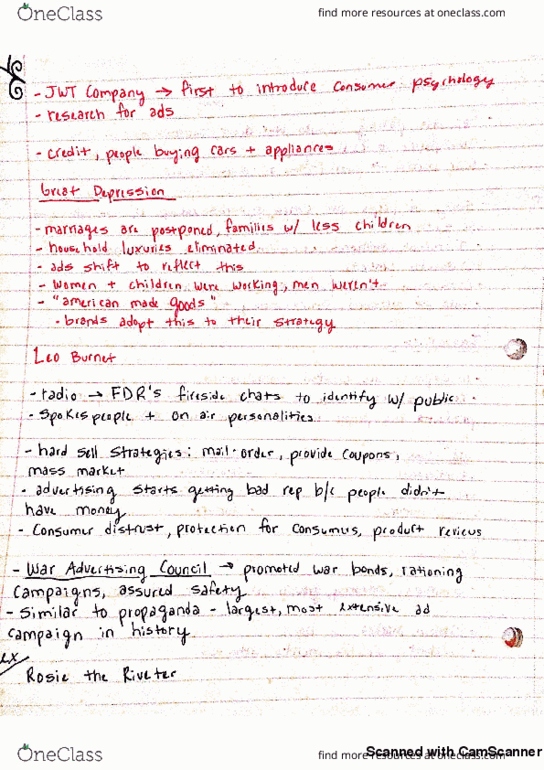 OneClass
find more resources at oneclass.com
- JWT Company → first to introduce consumer psychology
- research for ads
- credit, people buying cars + appliances
Great Depression
- marriages are postponed, families w/ less children
- household luxuries eliminated
- ads shift to reflect this
- women + children were working, men weren't
- "american made goods"
- brands adopt this to their strategy
Leo Burnet
- radio → FDR's fireside chats to identify w/ public
- Spokespeople + on air personalities
- hard sell strategies: mail-order, provide coupons,
mass market
- advertising starts getting bad rep b/c people didn't
have money
- Consumer distrust, protection for consumus, product reviews
- War Advertising Council → promoted war bonds, rationing
campaigns, assured safety
- Similar to propaganda - largest, most extensive ad
campaign in history
ex
Rosie the Riveter
OneClass
find more resources at oneclass.com
Scanned with CamScanner